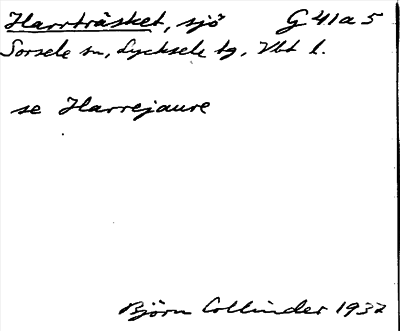 Harrträsket, sjö G 41 a 5
Sorsele sn, Lycksele tg, Vbt l.
se Harrejaure
Björn Collinder 1937